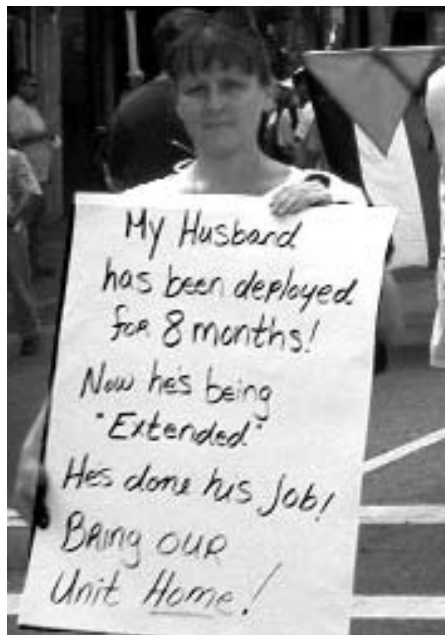 My Husband
has been deployed
for 8 months!
Now he's being
"Extended"
He's done his job!
Bring our
Unit Home!